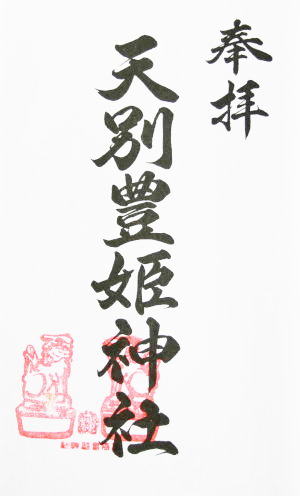 奉拝
天別豊姫神社